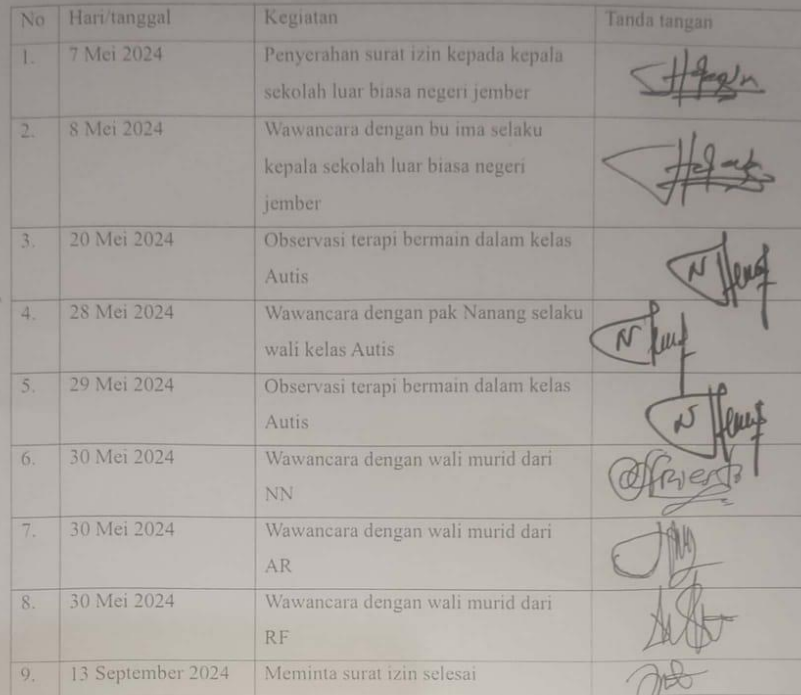 No Hari/tanggal Kegiatan Tanda tangan
1. 7 Mei 2024 Penyerahan surat izin kepada kepala
sekolah luar biasa negeri jember
2. 8 Mei 2024 Wawancara dengan bu ima selaku
kepala sekolah luar biasa negeri
jember
3. 20 Mei 2024 Observasi terapi bermain dalam kelas
Autis
4. 28 Mei 2024 Wawancara dengan pak Nanang selaku
wali kelas Autis
5. 29 Mei 2024 Observasi terapi bermain dalam kelas
Autis
6. 30 Mei 2024 Wawancara dengan wali murid dari
NN
7. 30 Mei 2024 Wawancara dengan wali murid dari
AR
8. 30 Mei 2024 Wawancara dengan wali murid dari
RF
9. 13 September 2024 Meminta surat izin selesai